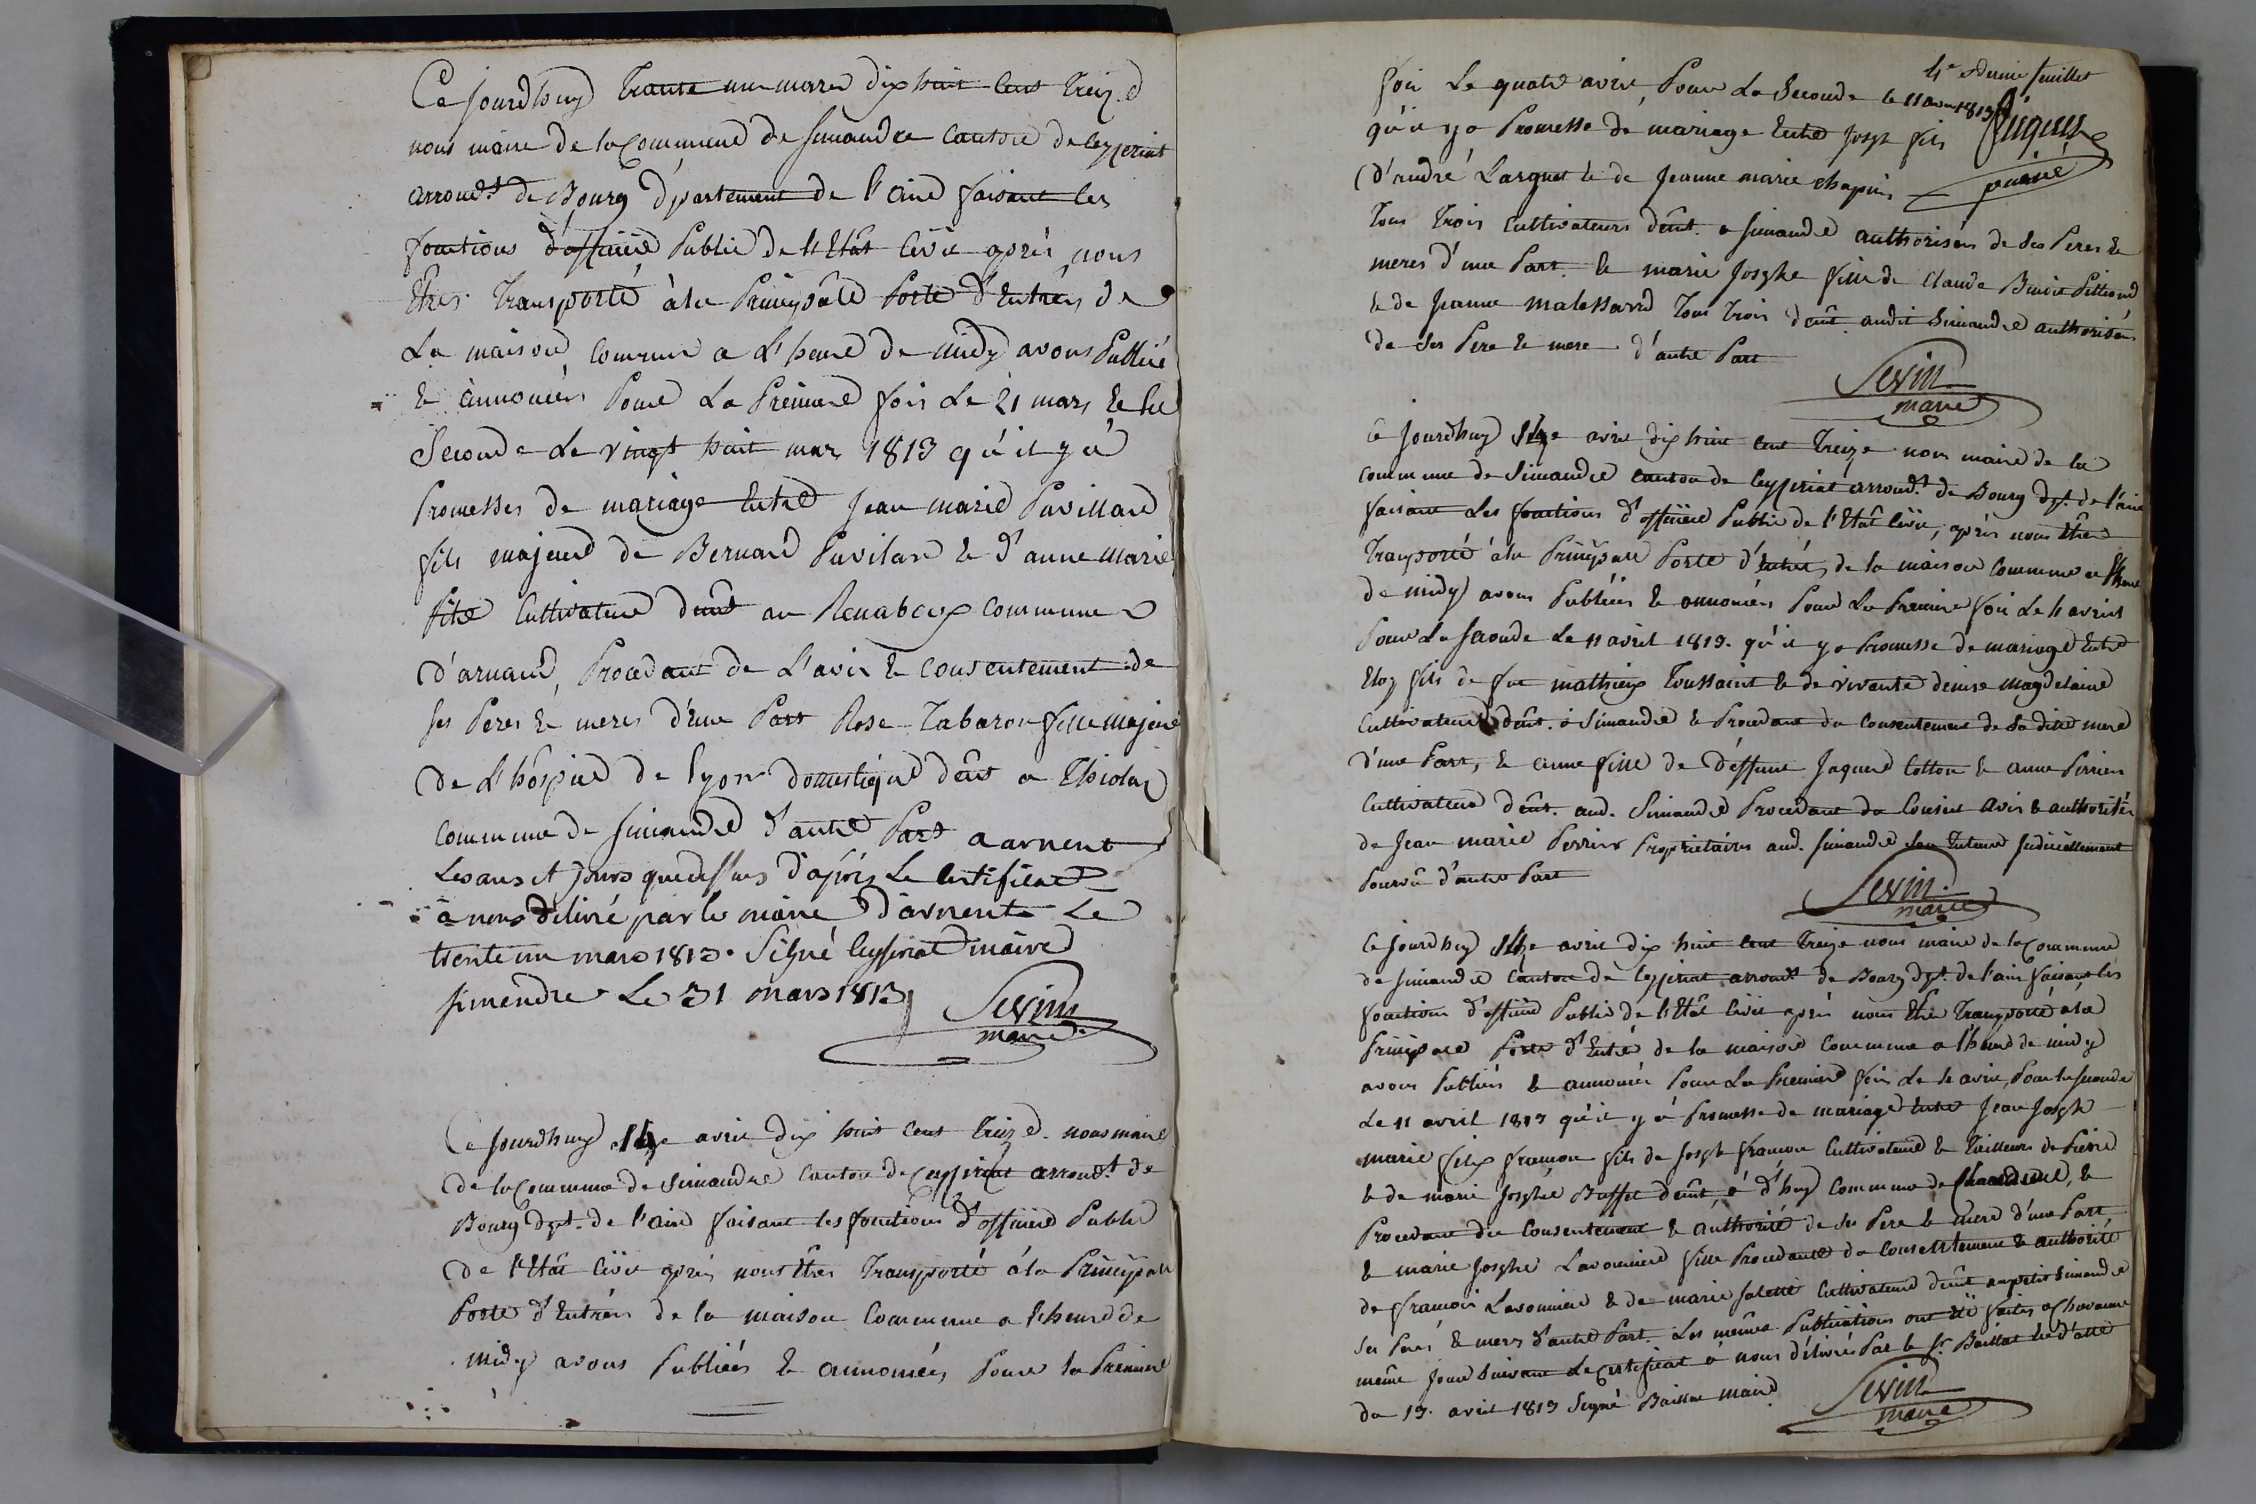 Ce jourdhuy Trante un mars dix huit cent treize
nous maire de la Commune de Simandre Canton de Ceyzeriat
arrond.t de Bourg département de l'aind faisant les
fonctions d'officier Public de l'Etât Civil après nous
Etres Transporté à la Principâle Porte d'Entrés de
La maison Commune a L'heure de midy avons Publié
& annoncés Pour La Premiere fois Le 21 mars & la
Seconde Le vingt huit mars 1813 qu'il y à
Promesses de mariage Entre Jean marie Pavillard
fils majeur de Bernard Pavilard & d'anne marie
Cultivateur deût au commune
d'arnand, Procedant de L'avis & Consentement de
ses Peres & meres d'une Part Rose Tabaron fille majeure
de L'hôspice de Lyon domestique deût a Thiolas
Commune de Simandre d'autre Part a arnent
Les ans et jours que dessus d'après Le Certificat
a nous delivré par le maire d'arnent Le
trente un mars 1813. Signé maire
simendre Le 31 mars 1813
Sevin
maire
Ce jourdhuy 14e avril dix huit cent treize. nous maire
de la Commune de Simandre Canton de Ceyzeriat arrond.t de
Bourg dpt. de l'aind faisant les fonctions d'officier Public
de l'Etât Civil après nous êtres Transporté à la Principale
Porte d'Entrés de la maison Commune a l'heure de
midy avons Publiés & annoncés Pour la Premiere
4e & dernier feuillet
fois Le quatre avril, Pour La Seconde le 11 avril 1813
qu'il y a Promesse de mariage Entre Joseph fils
puîné
d'andré Larguet & de Jeanne marie chapuis
Tous Trois Cultivateurs deût. a Simandre authorisés de Ses Peres &
meres d'une Part. & marie Josephe fille de Claude Benoit Pilliond
& de Jeanne malessard Tous Trois deût. audit Simandre authorisés
de Ses Pere & mere d'autre Part
Sevin
maire
Ce jourdhuy 14e avril dix huit cent Treize nous maire de la
Commune de Simandre Canton de Ceyzeriat arrond.t de Bourg dpt. de l'ain
faisant Les fonctions d'officier Public de l'Etât Civil, après nous être
Transporté à la Principale Porte d'Entrés de la maison Commune a l'heure
de midy avons Publiés & annoncés Pour La Premiere fois Le 4 avril
Pour La Seconde Le 11 avril 1813. qu'il y a Promesse de mariage Entre
Eloy fils de feu mathieux Toussaint & de vivante denise Magdelaine
Cultivateurs deût. à Simandre & Procedant du Consentement de Sa dite mere
d'une Part, & anne fille de deffunt Jaques Cotton & anne Perrier
Cultivateurs deût. aud. Simandre Procedant du Consent Avis & authorités
de Jean marie Perrier Proprietaires aud. Simandre Son Tuteur Judiciellement
Pourvû d'autre Part
Sevin
maire
Ce jourdhuy 14e avril dix huit cent Treize nous maire de la Commune
de Simandre Canton de Ceyzeriat arrond.t de Bourg dpt. de l'ain faisant les
fonctions d'officier Public de l'Etât Civil après nous Etre Transporté a la
Principale Porte d'Entré de la maison Commune a l'heure de midy
avons Publiés & annoncés Pour La Premiere fois Le 4 avril, Pour la seconde
Le 11 avril 1813 qu'il y à Promesse de mariage Entre Jean Joseph
marie félix françon fils de Joseph françon Cultivateurs & Tailleurs de Pierre
& de marie Josephe Buffet deût. a d'huy Commune de &
Procedant du Consentement & authorité de Ses Pere & mere d'une Part
& marie Josephe Lavomiere fille Procedante du Consentement & authorité
de françois Lavomiere & de marie Cultivateurs deût. au petit Simandre
Ses Peres & meres d'autre Part. Les mêmes Publications ont été faites a Chavanne
même Jour Suivant Le Certificat à nous délivré Par le Sr. Baillat
du 13. avril 1813 Signé Baillat maire
Sevin
maire